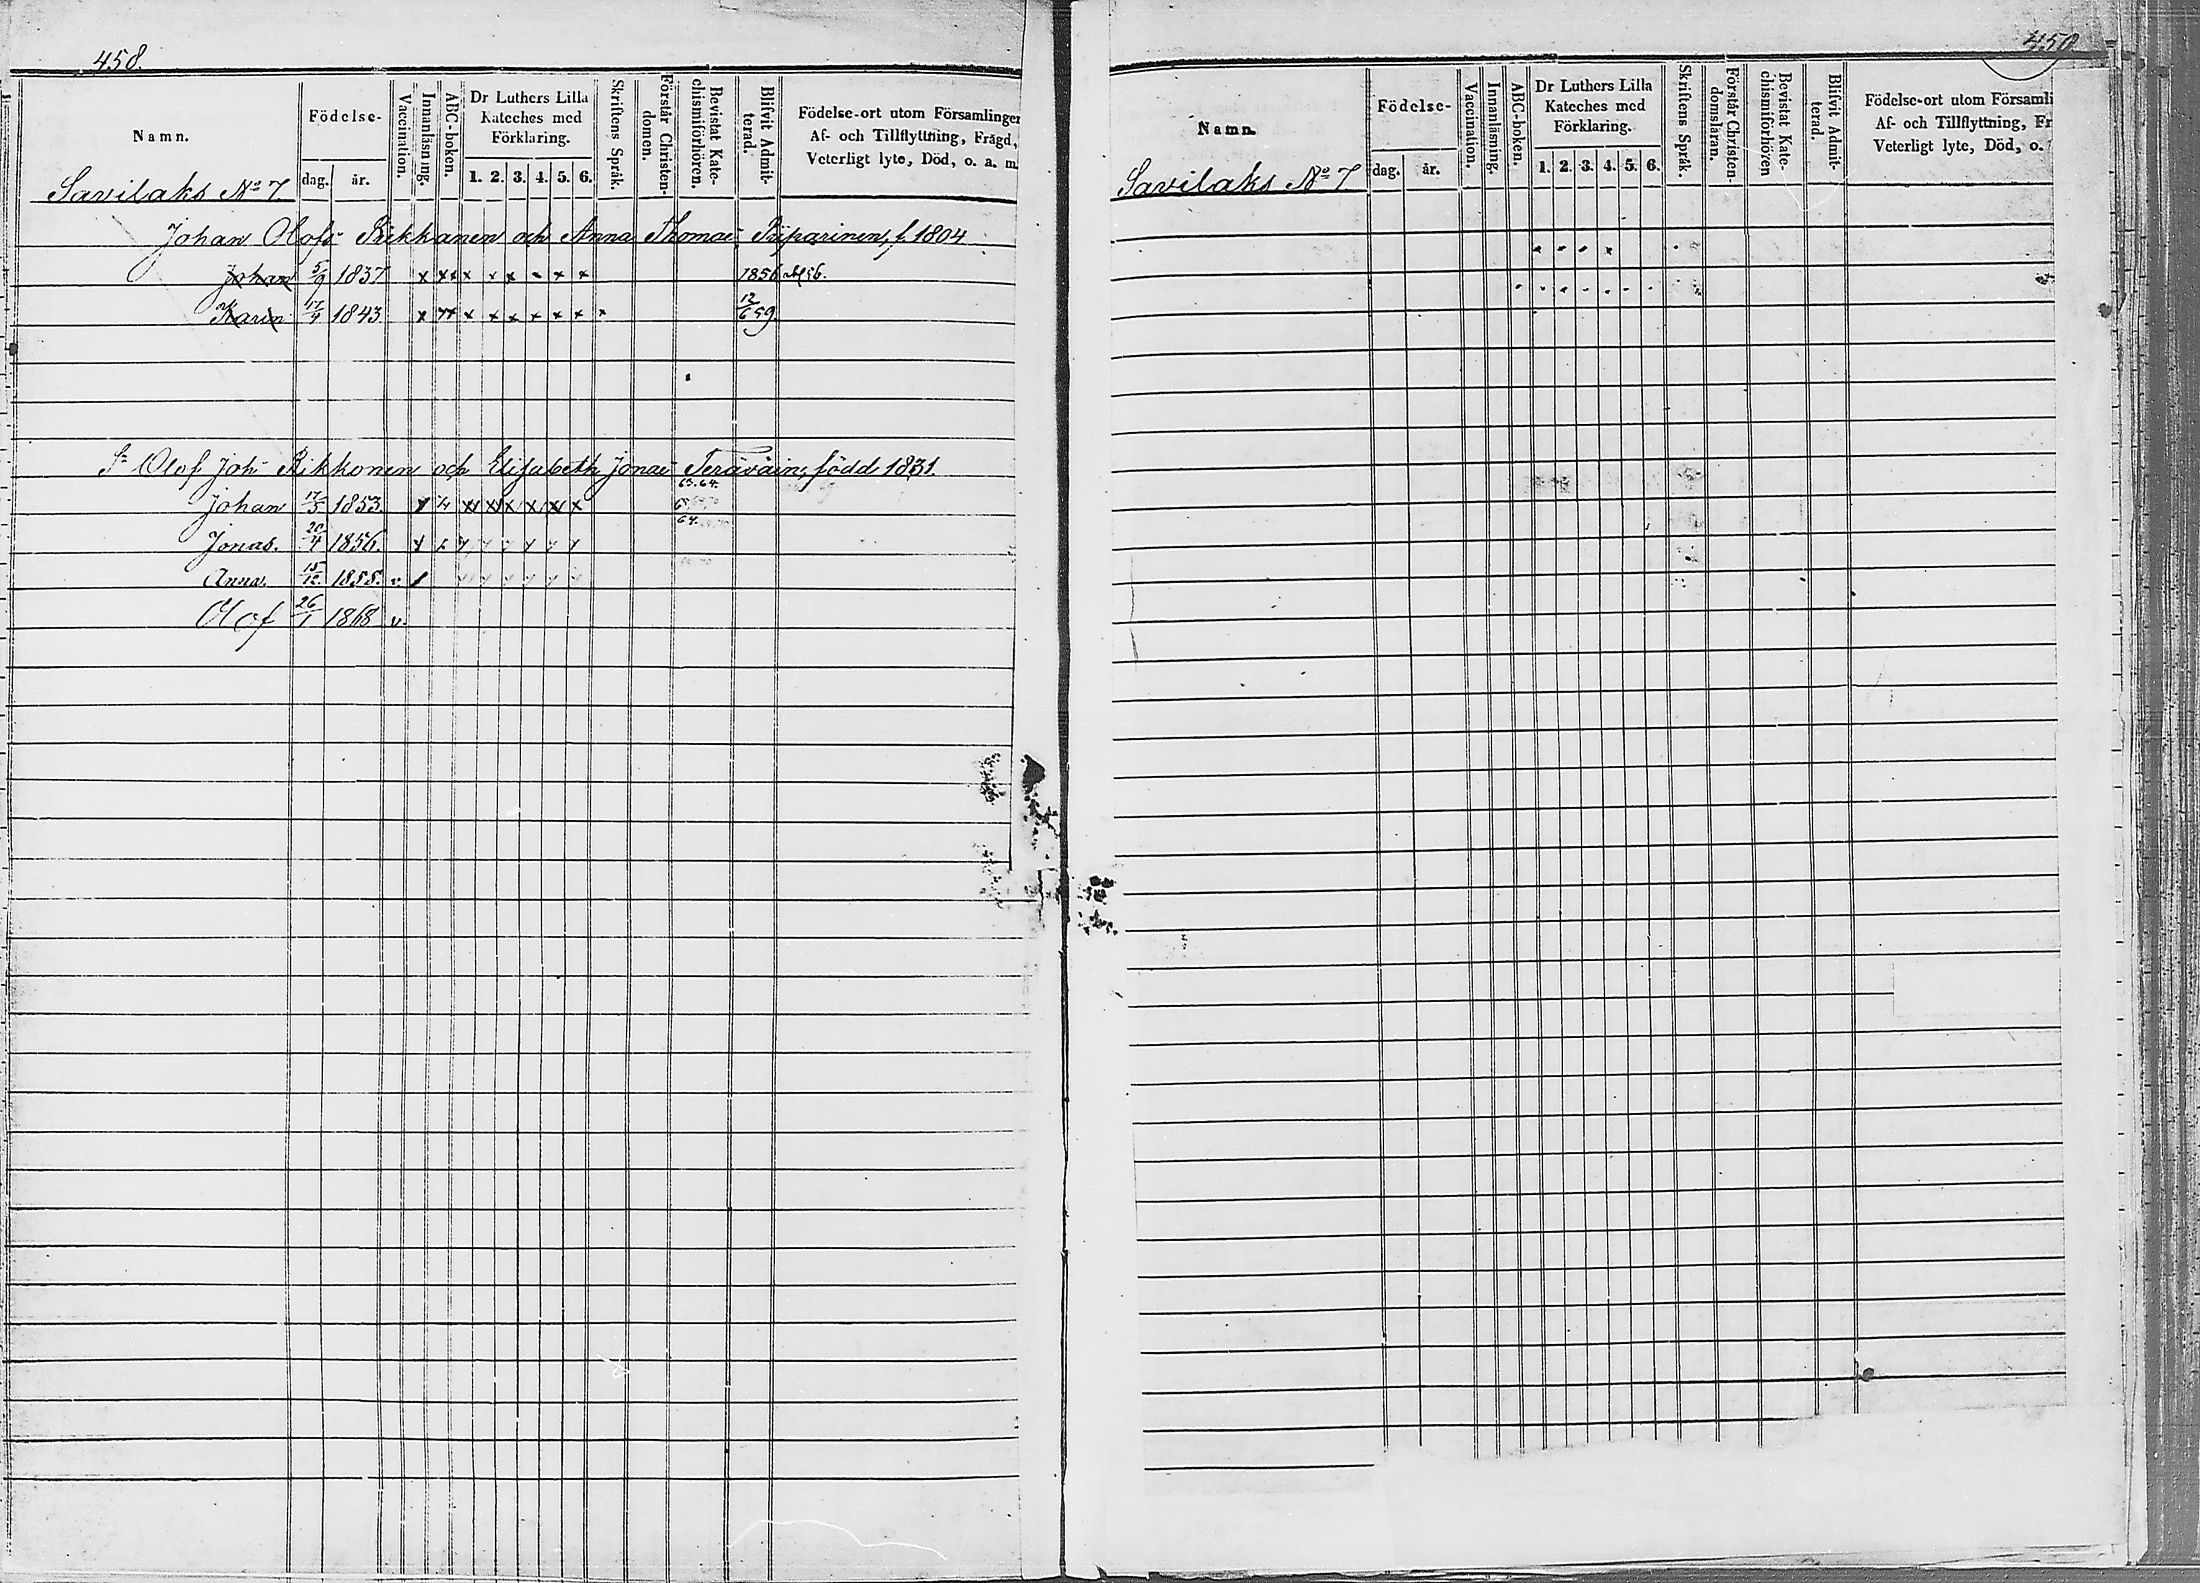 458.
Namn.
Födelse-
dag.
år.
Vaccination.
Innanläsning.
ABC-boken.
Dr Luthers Lilla
Kateches med
Förklaring.
1. 2. 3. 4. 5. 6.
Skriftens Språk.
Förstår Christen-
domen.
Bevistat Kate-
chismiförhören.
Blifvit Admit-
terad.
Födelse-ort utom Församlingen
Af- och Tillflyttning, Frägd,
Veterligt lyte, Död, o. a. m.
Savilaks No 7.
Johan Olofs Rikkonen och Anna Thomae Piiparinen, f. 1804
Johan 5/9 1837 x xx x x x x x x 1856
Karin 17/4 1843. x xx x x x x x x x 12/6 59.
Sn Olof Joh Rikkonen och Elisabeth Jonae Teräväin, född 1831.
63.64.
Johan 17/5 1853.
64.
Jonas. 20/4 1856.
Anna. 15/12 1858. v.
Olof 26/1 1868 v.
Namn.
Födelse-
dag.
år.
Vaccination.
Innanläsning.
ABC-boken.
Dr Luthers Lilla
Kateches med
Förklaring.
1. 2. 3. 4. 5. 6.
Skriftens Språk.
Förstår Christen-
domsläran.
Bevistat Kate-
chismiförhören
Blifvit Admit-
terad.
Födelse-ort utom Församli
Af- och Tillflyttning, Fr
Veterligt lyte, Död, o.
Savilaks No 7